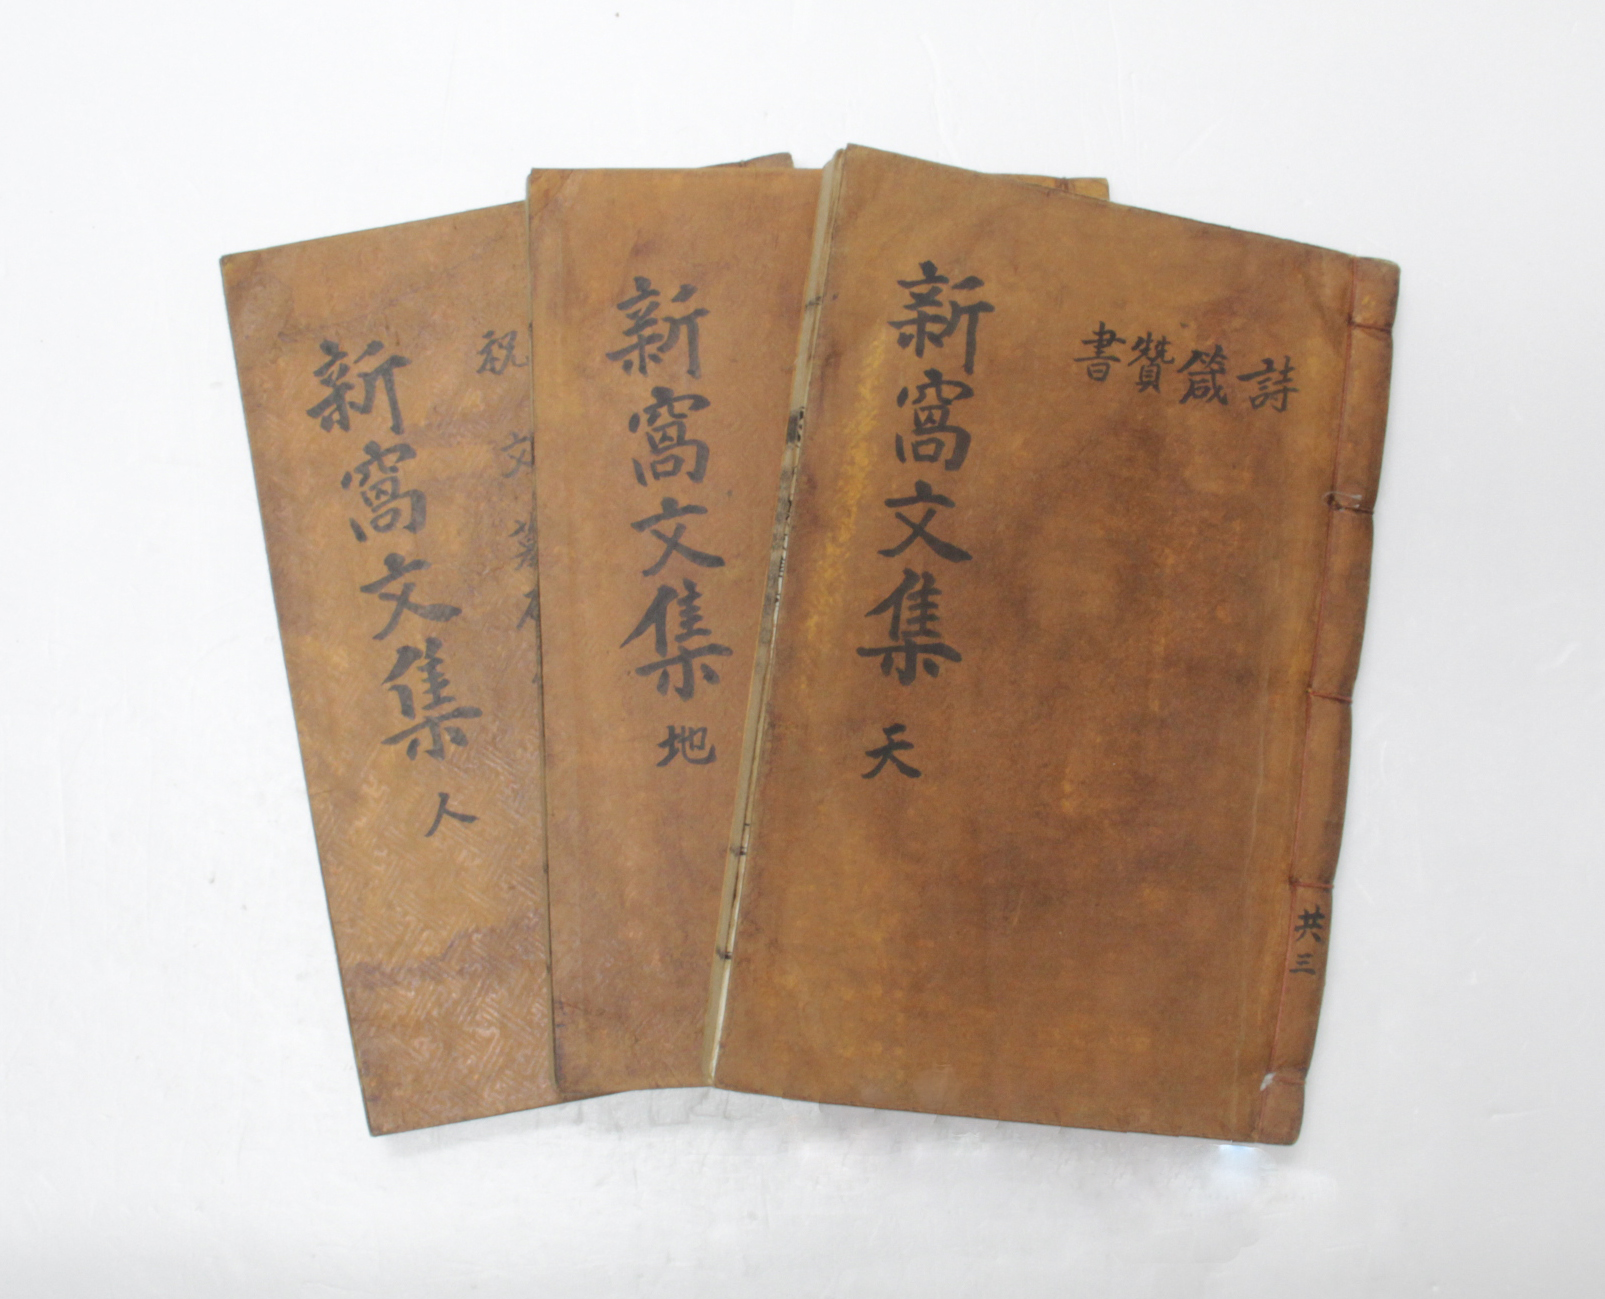 詩
箴
贊
書
新窩文集 天
共三
新窩文集 地
祝文
新窩文集 人